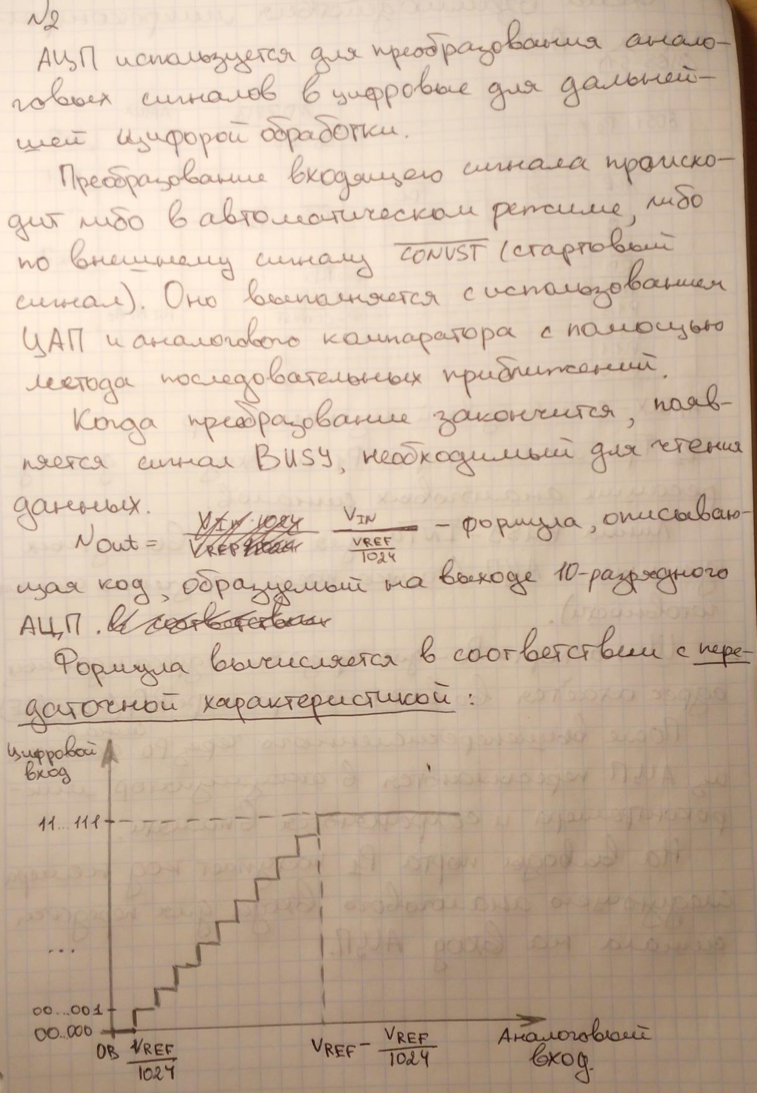 №2
АЦП используется для преобразования анало-
говых сигналов в цифровые для дальней-
шей цифорой обработки.
Преобразование входящего сигнала происхо-
дит либо в автоматическом режиме, либо
по внешнему сигналу CONVST (стартовый
сигнал). Оно выполняется с использованием
ЦАП и аналогового компаратора с помощью
метода последовательных приближений.
Когда преобразование закончится, появ-
ляется сигнал BUSY, необходимый для чтения
данных.
Nout = VIN / (VREF/1024) – формула, описываю-
щая код, образуемый на выходе 10-разрядного
АЦП.
Формула вычисляется в соответствии с пере-
даточной характеристикой:
Цифровой
вход
11...111
...
00...001
00...000
0В VREF/1024 VREF – VREF/1024 Аналоговый
вход.